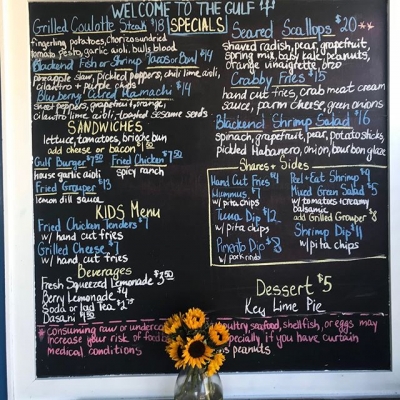 WELCOME TO THE GULF
Grilled Coulotte Steak $18
SPECIALS
fingerling potatoes, chorizo sundried
tomato pesto, garlic aioli, bulls blood
Blackend Fish or Shrimp Tacos or Bowl $14
pineapple slaw, pickled peppers, chili lime aioli,
cilantro + purple chips
Blueberry Cured Hamachi $14
sweet peppers, grapefruit, orange,
cilantro lime aioli, toasted sesame seeds
SANDWICHES
lettuce, tomatoes, brioche bun
add cheese or bacon $1.50
Gulf Burger $7.50
house garlic aioli
Fried Chicken $7.50
spicy ranch
Fried Grouper $13
lemon dill sauce
KIDS Menu
Fried Chicken Tenders $7
w/ hand cut fries
Grilled Cheese $7
w/ hand cut fries
Beverages
Fresh Squeezed Lemonade $3.50
Berry Lemonade $4
Soda or Iced Tea $2.75
Dasani
Seared Scallops $20 **
shaved radish, pear, grapefruit,
spring mix, baby kale, peanuts,
orange vinaigrette, orzo
Crabby Fries $15
hand cut fries, crab meat cream
sauce, parm cheese, green onions
Blackend Shrimp Salad $16
spinach, grapefruit, pear, potato sticks,
pickled Habanero, onion, bourbon glaze
Shares + Sides
Hand Cut Fries $4
Hummus $7
w/ pita chips
Tuna Dip $12
w/ pita chips
Pimento Dip
w/ pork rinds
Peel + Eat Shrimp $9
Mixed Green Salad $5
w/ tomatoes + creamy
balsamic
add Grilled Grouper $8
Shrimp Dip $11
w/ pita chips
Dessert $5
Key Lime Pie
* consuming raw or undercooked poultry, seafood, shellfish, or eggs may
increase your risk of especially if you have certain
medical conditions peanuts